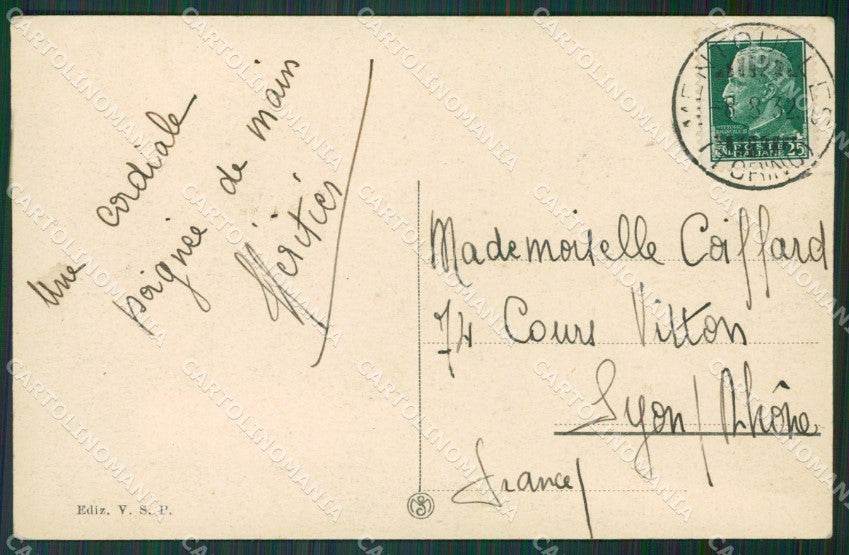 Une cordiale
poignée de main
Héritier
Mademoiselle Coiffard
74 Cours Vitton
Lyon/Rhône
France/
Ediz. V. S. P.
POSTE
ITALIANE
25
TORINO
CARTOLINOMANIA